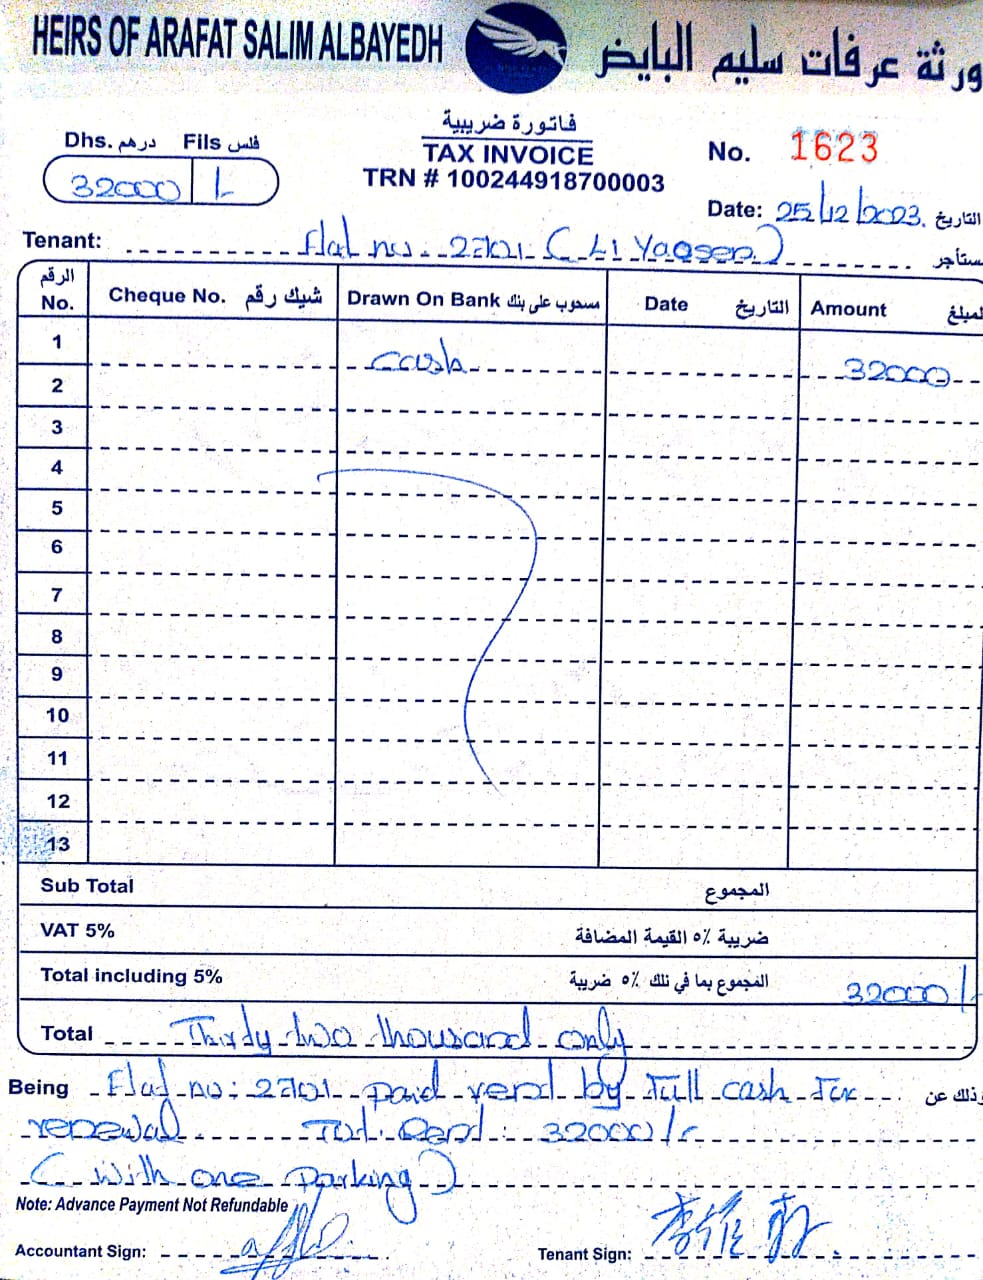 HEIRS OF ARAFAT SALIM ALBAYEDH
ورثة عرفات سليم البايض
Dhs. درهم Fils فلس
32000 /-
فاتورة ضريبية
TAX INVOICE
TRN # 100244918700003
No. 1623
Date: 25/12/2023. التاريخ
Tenant: Flat no. 2701 (Li Yaqsen) مستأجر
الرقم No. Cheque No. شيك رقم Drawn On Bank مسحوب على بنك Date التاريخ Amount المبلغ
1 cash 32000
2
3
4
5
6
7
8
9
10
11
12
13
Sub Total المجموع
VAT 5% ضريبة ٥٪ القيمة المضافة
Total including 5% المجموع بما في ذلك ٥٪ ضريبة 32000/-
Total Thirdy two thousand only
Being Flat no: 2701 paid rend by Full cash For وذلك عن
renewal Tot. Rent: 32000/-
(With one Parking)
Note: Advance Payment Not Refundable
Accountant Sign:
Tenant Sign: 李